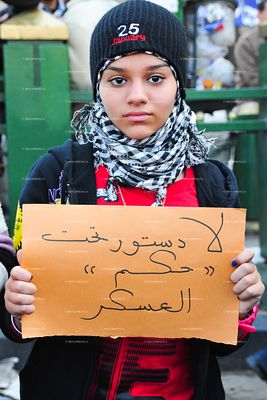 25
january
لا دستور تحت
"حكم"
العسكر